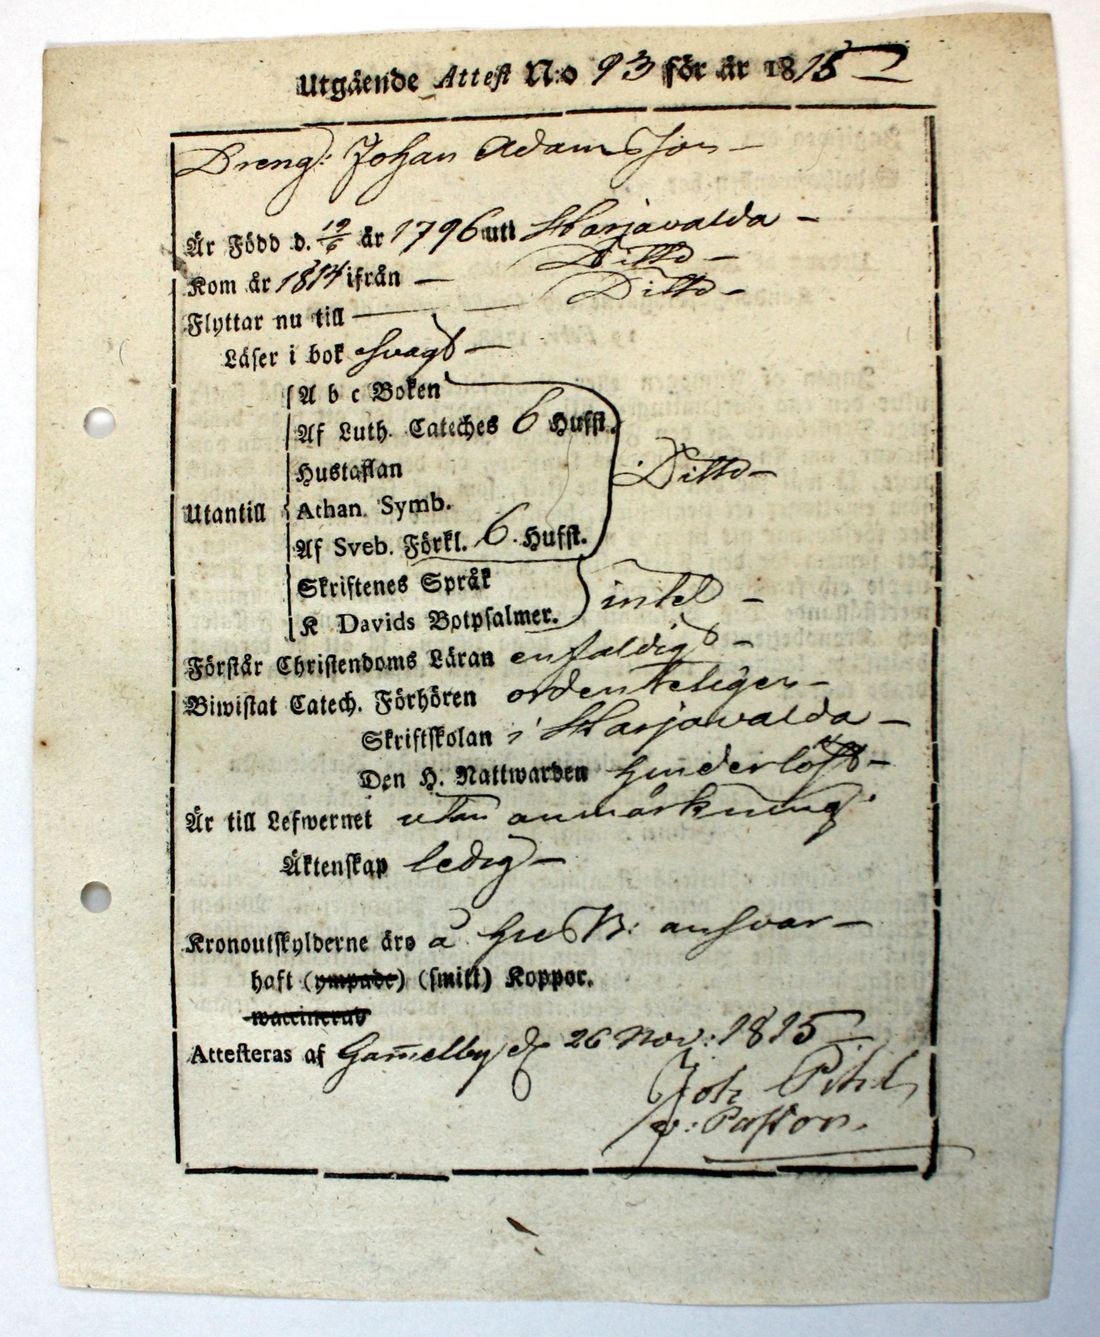 Utgående Attest N:o 93 för år 1815
Dreng: Johan Adamsson
Är Född d. 19/6 år 1796 uti Harjavalda
Kom år 1814 ifrån – Ditto
Flyttar nu till – Ditto
Läser i bok svagt
A b c Boken
Af Luth. Cateches 6 Hufst.
Hustaflan
Ditto
Utantill Athan. Symb.
Af Sveb. Förkl. 6. Hufst.
Skriftenes Språk
intet
K Davids Botpsalmer.
Förstår Christendoms Läran enfaldigt
Biwistat Catech. Förhören ordenteligen
Skriftskolan i Harjavalda
Den H. Nattwarden hinderlöst
Är till Lefwernet utan anmärkning
Äktenskap ledig
Kronoutskylderne äro å husb: ansvar
haft (ympade) (smitt) Koppor.
waccinerad
Attesteras af Gamelby d 26 Nov: 1815
Joh Pihl
v: Pastor.